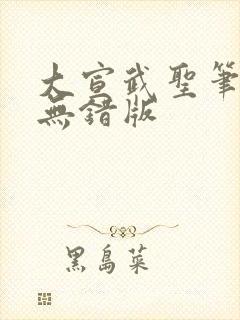 大宣武聖筆
無錯版
黑島菜